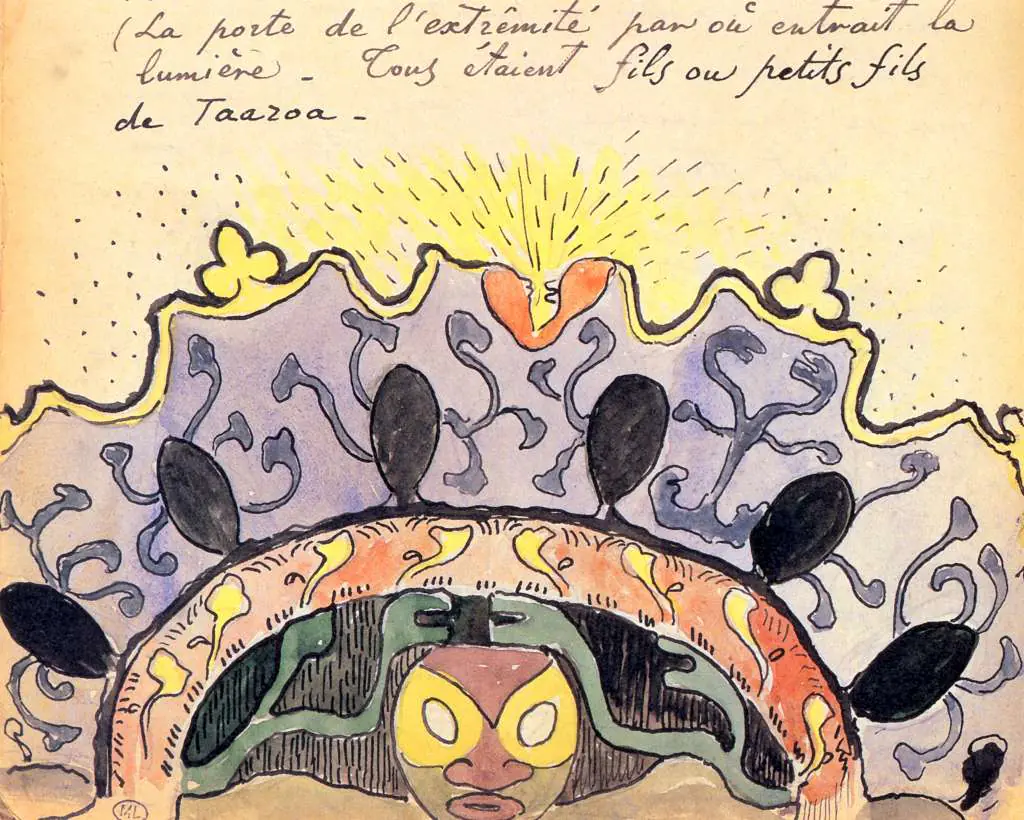 (La porte de l'extrêmité par où entrait la
lumière - Tous étaient fils ou petits fils
de Taaroa -
ML